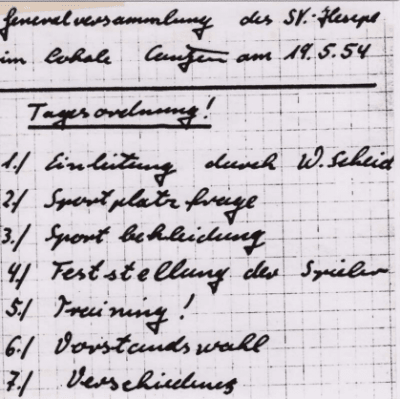 Generalversammlung des SV. Hespe
im Lokale am 19.5.54
Tagesordnung!
1./ Einleitung durch W. Scheid
2./ Sportplatzfrage
3./ Sportbekleidung
4./ Feststellung der Spieler
5./ Training!
6./ Vorstandswahl
7./ Verschiednes